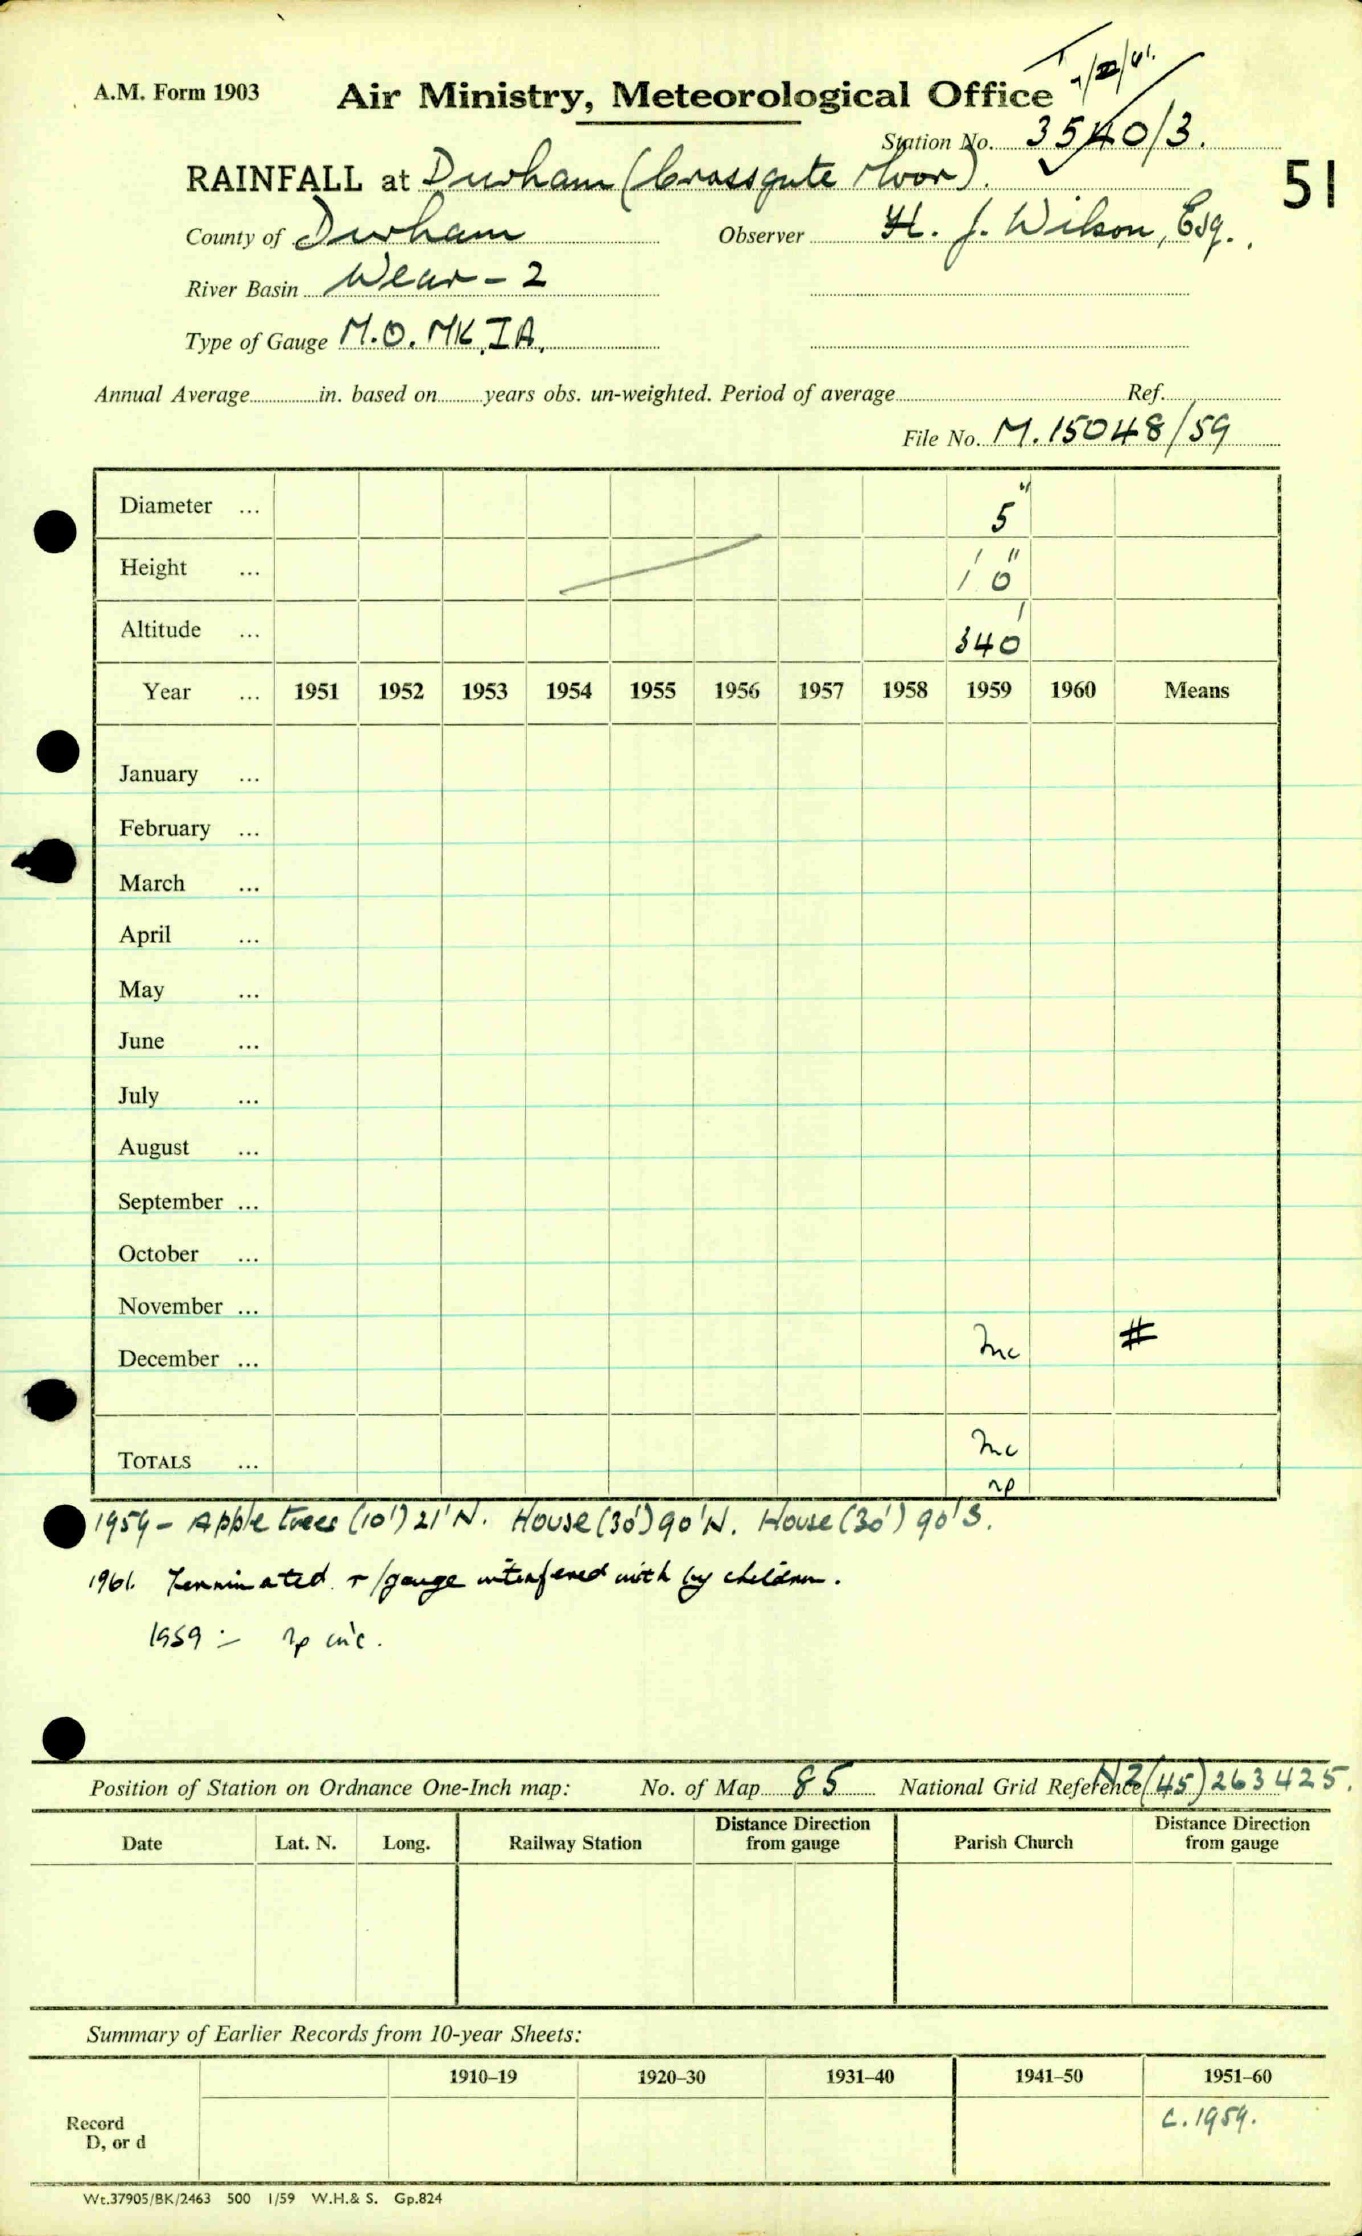 A.M. Form 1903 Air Ministry, Meteorological Office
Station No. 3540/3.
RAINFALL at Durham (Crossgate Moor). 51
County of Durham Observer H. J. Wilson, Esq.
River Basin Wear - 2
Type of Gauge M.O. MK IA.
Annual Average in. based on years obs. un-weighted. Period of average Ref.
File No. M.15048/59
Diameter ... 5"
Height ... 1' 0"
Altitude ... 340'
Year ... 1951 1952 1953 1954 1955 1956 1957 1958 1959 1960 Means
January ...
February ...
March ...
April ...
May ...
June ...
July ...
August ...
September ...
October ...
November ...
December ... #
TOTALS ...
1959 - Apple trees (10') 21' N. House (30') 90' N. House (30') 90' S.
1961. Terminated r/gauge interfered with by children.
1959 :-
Position of Station on Ordnance One-Inch map: No. of Map 85 National Grid Reference NZ (45) 263425.
Date Lat. N. Long. Railway Station Distance Direction from gauge Parish Church Distance Direction from gauge
Summary of Earlier Records from 10-year Sheets:
1910–19 1920–30 1931–40 1941–50 1951–60
Record
D, or d
c. 1959.
Wt.37905/BK/2463 500 1/59 W.H.& S. Gp.824